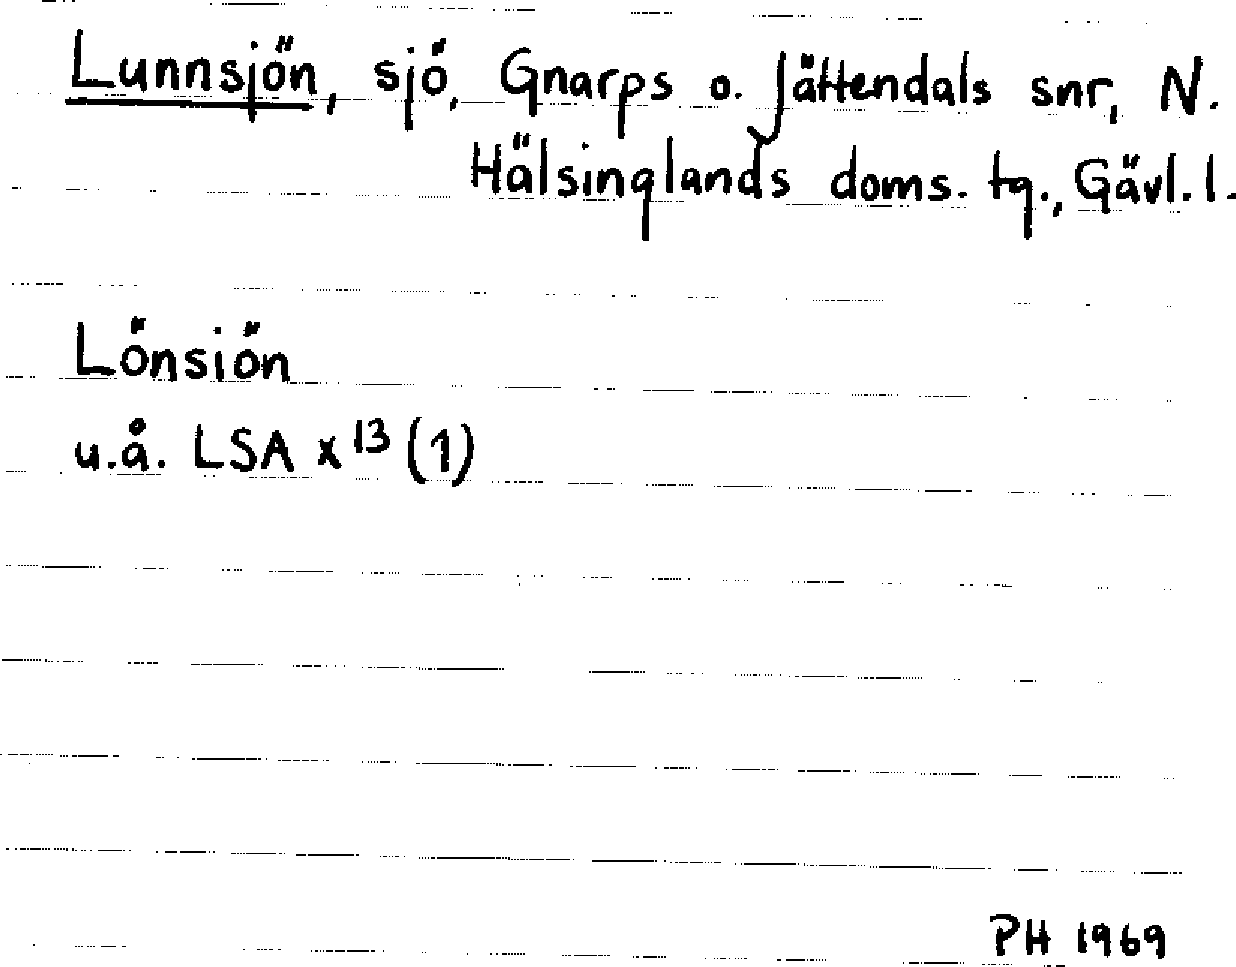 Lunnsjön, sjö, Gnarps o. Jättendals snr, N.
Hälsinglands doms. tg., Gävl. l.
Lönsiön
u.å. LSA x¹³ (1)
PH 1969